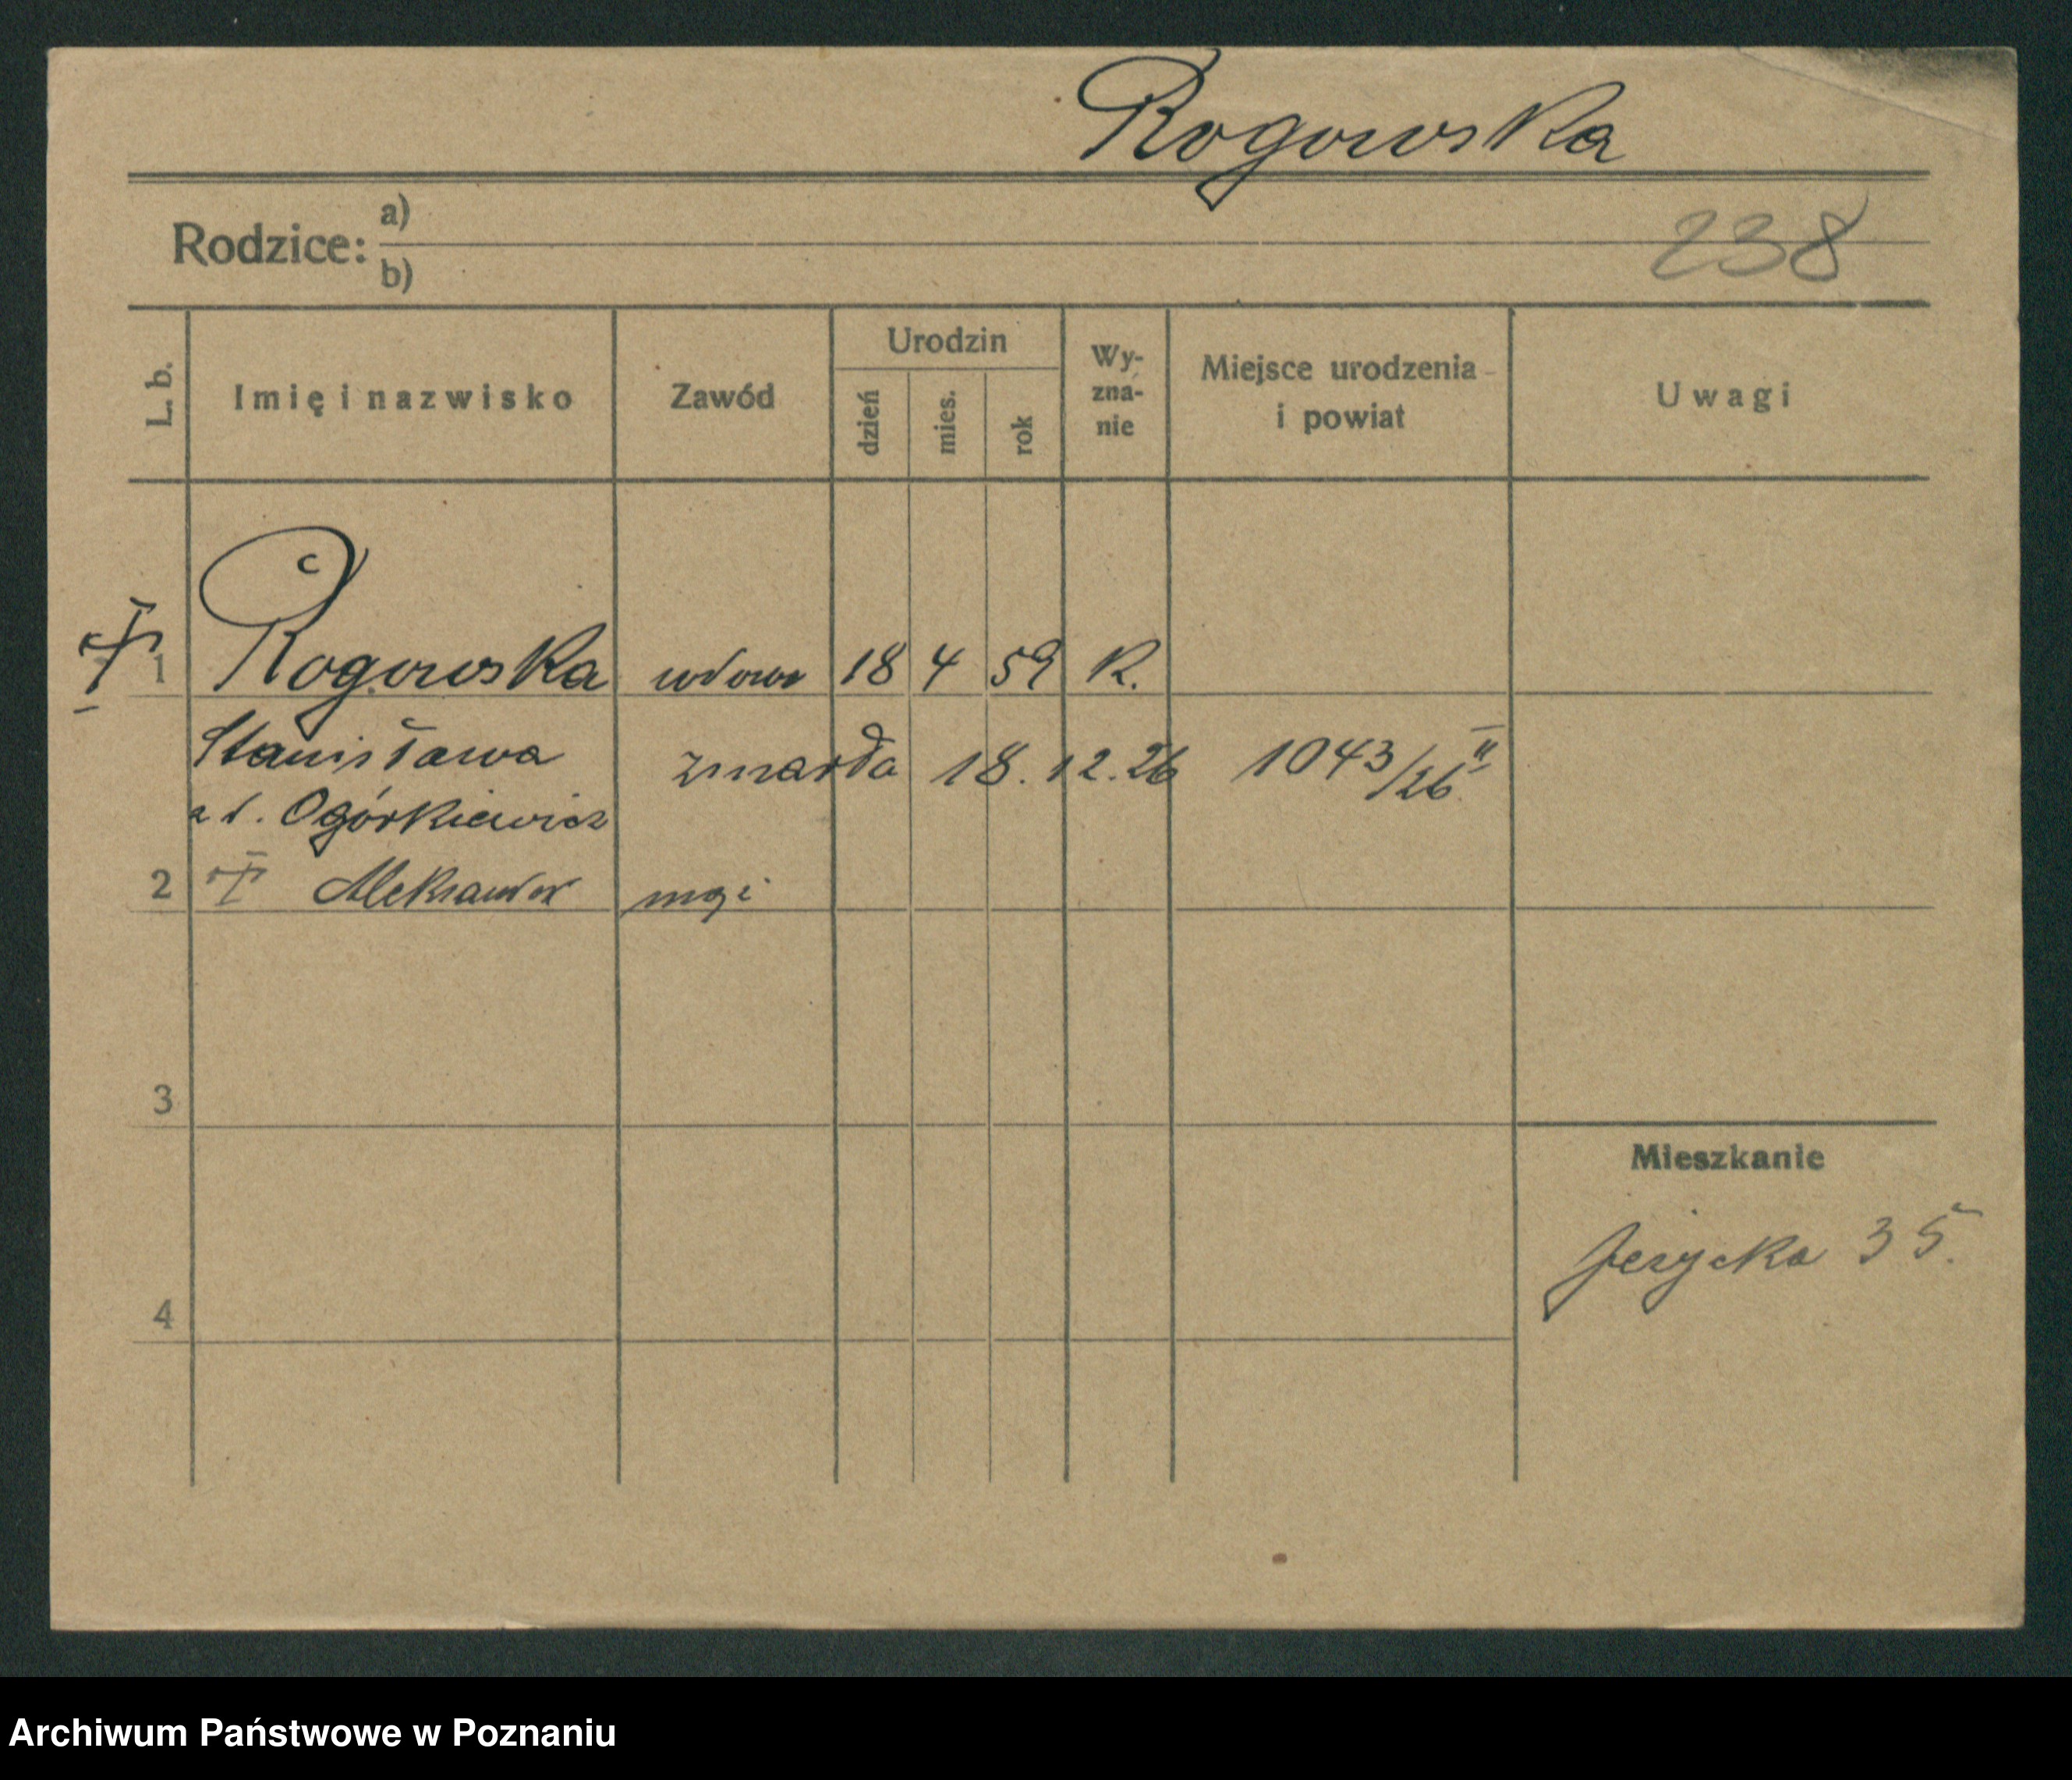 Rogowska
Rodzice: a)
b)
238
L. b.
Imię i nazwisko
Zawód
Urodzin
dzień
mies.
rok
Wy-
zna-
nie
Miejsce urodzenia
i powiat
Uwagi
1 Rogowska wdowa 18 4 59 R.
Stanisława zmarła 18.12.26 1043/26 II
z d. Ogórkiewicz
2 Aleksander mąż
3
Mieszkanie
Jeżycka 35.
4
Archiwum Państwowe w Poznaniu